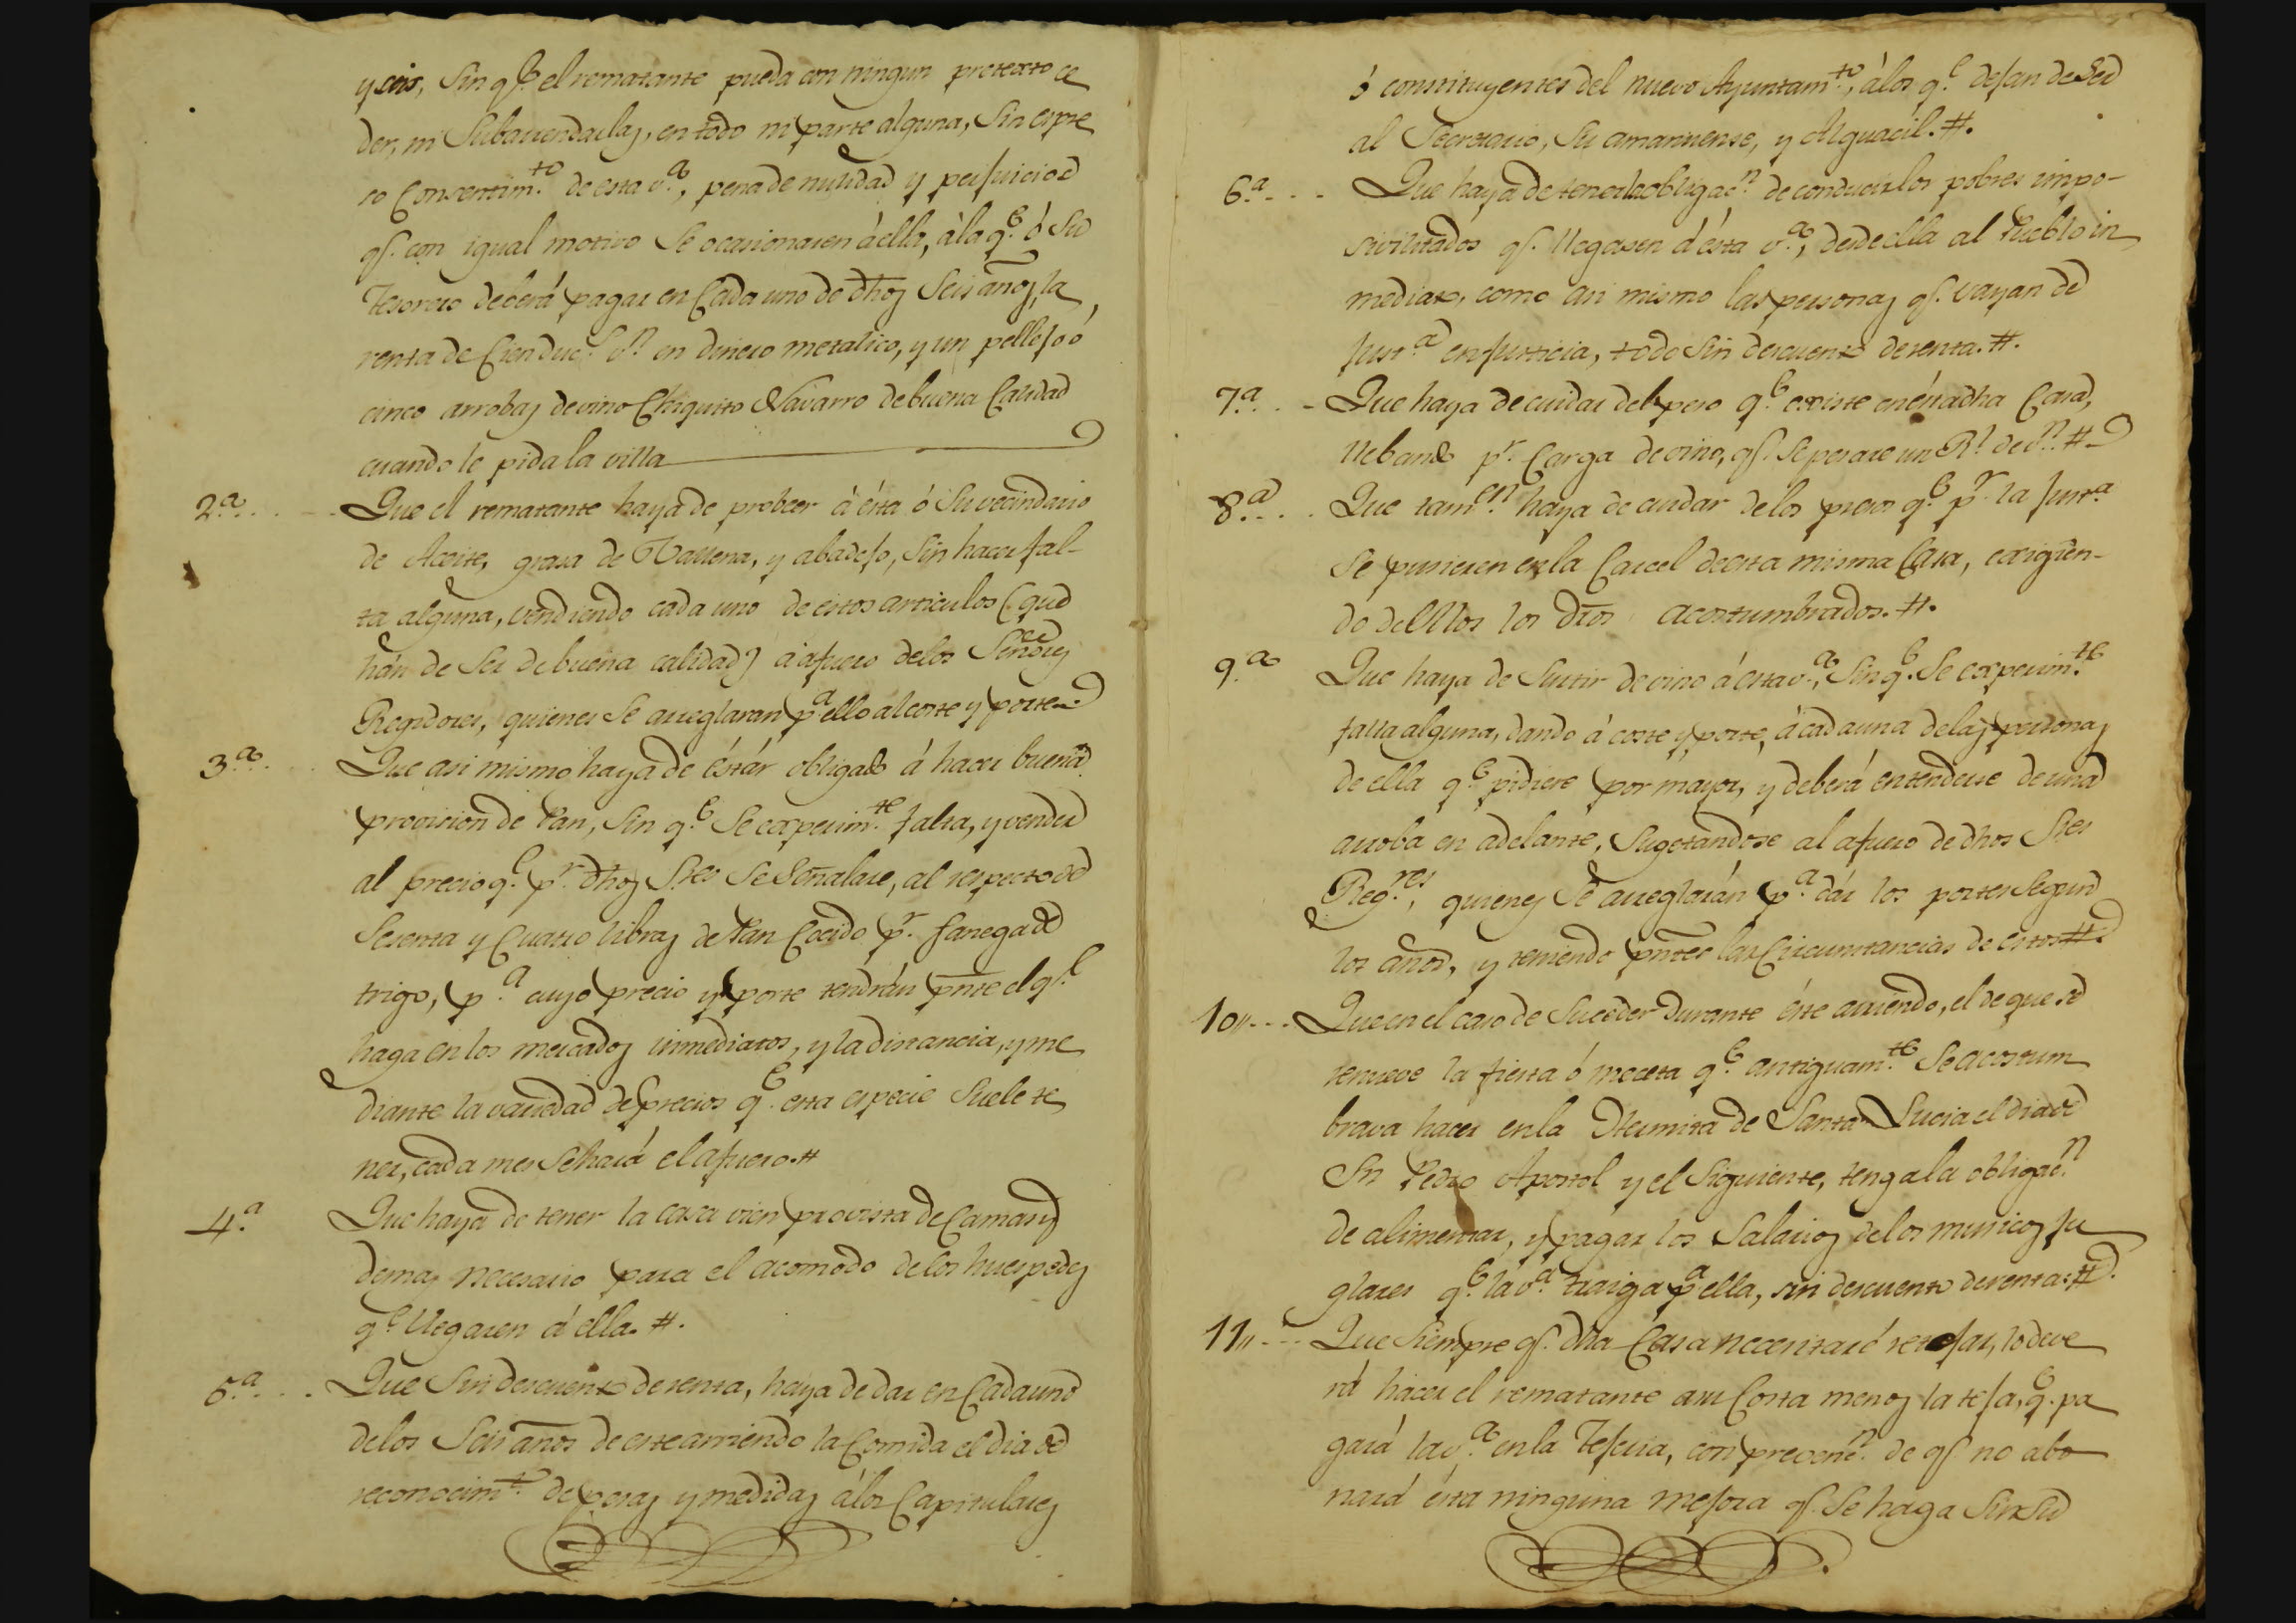 y seis, Sin q.e el rematante pueda con ningun pretexto ce
der, ni Subarrendarlas, en todo ni parte alguna, Sin espre
so Consentim.to de esta v.a, pena de nulidad y perjuicios
q.e con igual motivo Se ocasionaren á ella, á la q.e ó Su
Tesorero deberá pagar en Cada uno de dhos Seis años, la
renta de Cien duc.s v.n en dinero metalico, y un pellejo ó
cinco arrobas de vino Chiquito Navarro de buena Calidad
cuando le pida la villa
2.a Que el rematante haya de probeer á ésta ó Su vecindario
de Aceite, grasa de Vallena, y abadejo, Sin hacer fal-
ta alguna, vendiendo cada uno de estos articulos (que
hán de Ser de buena calidad) á afuero de los Señores
Regidores, quienes Se arreglaran p.a ello al coste y porte.
3.a Que asi mismo haya de éstár obligado á hacer buena
provision de Pan, Sin q.e Se experim.te falta, y vender
al precio q.e p.r dhos S.res Se Señalare, al respecto de
Sesenta y Cuatro libras de Pan Cocido p.r fanega de
trigo, p.a cuyo precio y porte tendrán pnte el q.e
haga en los mercados inmediatos, y la distancia, y me
diante la variedad de precios q.e esta especie Suele te
ner, cada mes Se hará el afuero.#
4.a Que haya de tener la casa vien provista de Camas y
demas necesario para el acomodo de los huespedes
q.e llegaren á ella. #.
5.a Que Sin descuento de renta, haya de dar en Cada uno
de los Seis años de este arriendo la Comida el dia de
reconocim.to de pesas y medidas á los Capitulares
ó constituyentes del nuevo Ayuntam.to, á los q.e dejan de Ser
al Secretario, Su amanuense, y Alguacil. #.
6.a Que haya de tener la obligac.n de conducir los pobres impo-
sivilitados q.e llegasen á ésta v.a, desde ella al Pueblo in
mediato, como asi mismo las personas q.e vayan de
Just.a en justicia, todo Sin descuento de renta. #.
7.a Que haya de cuidar del peso q.e existe en ésta dha Casa,
llebando p.r Carga de vino, q.e Se pesare un R.l de v.n #
8.a Que tam.en haya de cuidar de los presos q.e p.r la Just.a
Se pusieren en la Carcel de esta misma Casa, exigien-
do de ellos los dros acostumbrados. #.
9.a Que haya de Surtir de vino á esta v.a, Sin q.e Se experim.te
falta alguna, dando á coste y porte, á cada una de las personas
de ella q.e pidiere por mayor, y deberá entenderse de una
arroba en adelante, Sugetandose al afuero de dhos S.res
Reg.res, quienes Se arreglarán p.a dár los portes Segun
los años, y teniendo pntes las Circunstancias de estos #.
10,, Que en el caso de Suceder durante éste arriendo, el de que se
renueve la fiesta ó meceta q.e antiguam.te Se acostum
brava hacer en la Hermita de Santa Lucia el dia de
Sn Pedro Apostol y el Siguiente, tenga la obligac.n
de alimentar, y pagar los Salarios de los musicos ju
glares q.e la v.a traiga p.a ella, sin descuento de renta: #.
11,, Que Siempre q.e dha Casa necesitare retejar, lo deve
rá hacer el rematante á su Costa menos la teja, q.e pa
gará la v.a en la Tejeria, con prevenc.n de q.e no abo
nará ésta ninguna mejora q.e Se haga Sin Su